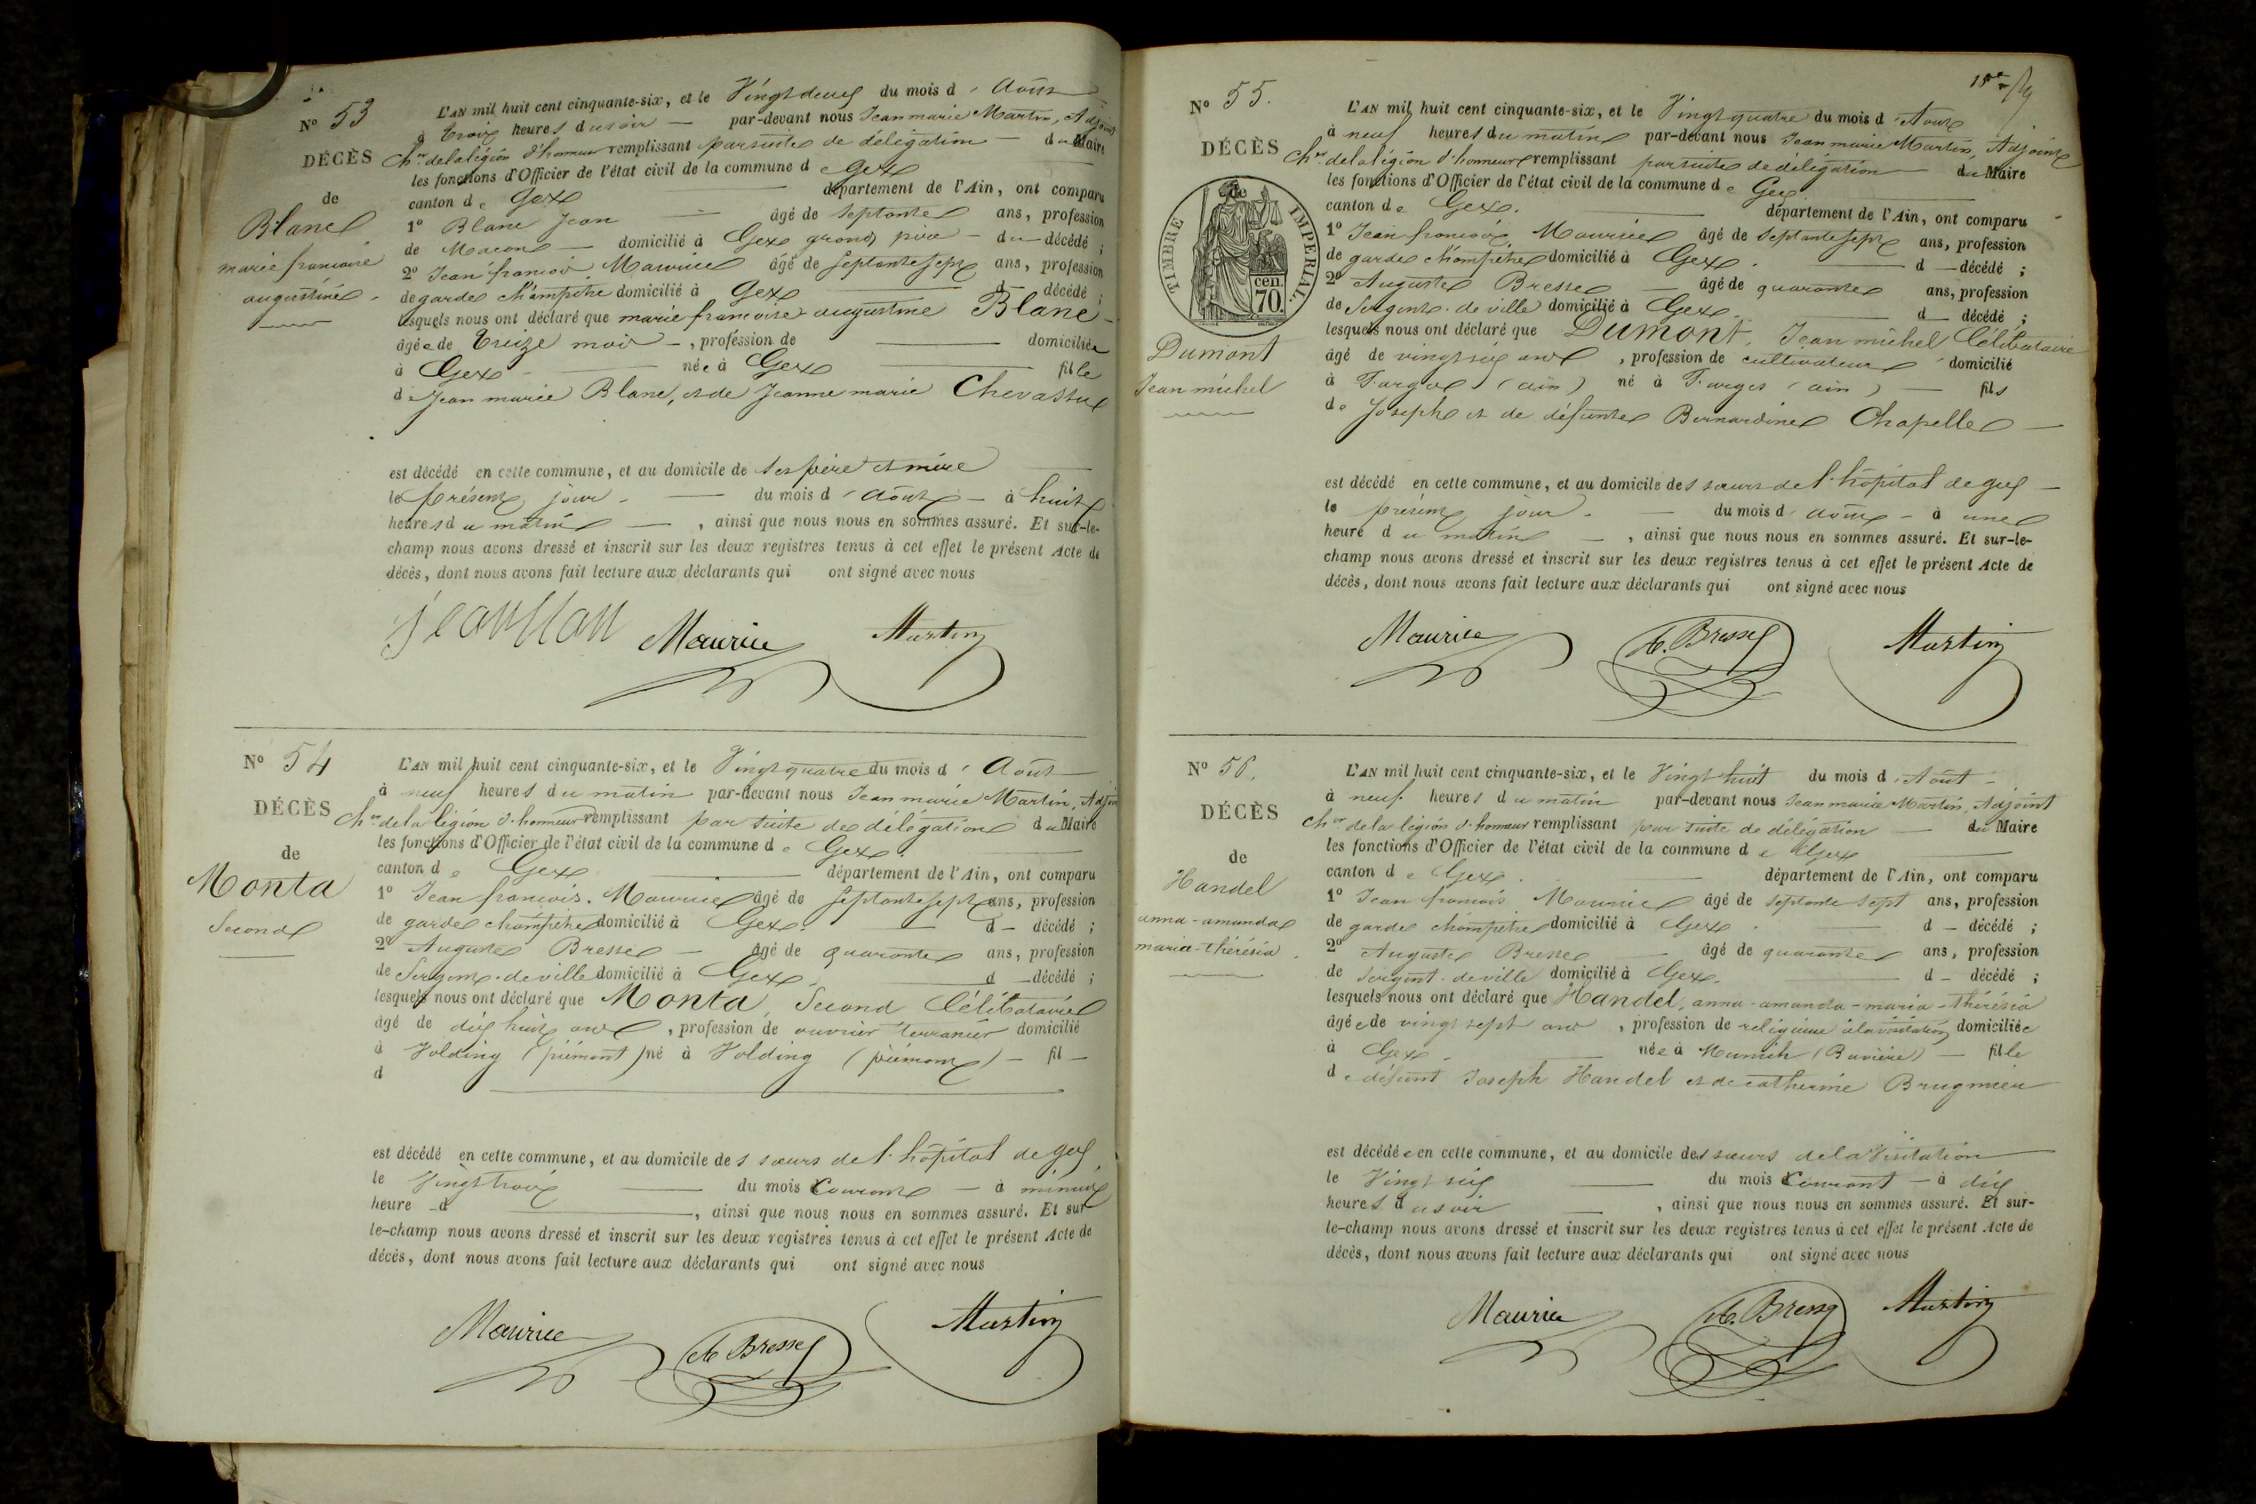 Nº 53
DÉCÈS
de
Blanc
marie françoise
augustine
L'AN mil huit cent cinquante-six, et le Vingt deux du mois d'Août
à trois heures du soir par-devant nous Jean marie Martin, Adjoint
Chr. de la légion d'honneur remplissant par suite de délégation du Maire
les fonctions d'Officier de l'état civil de la commune de Gex
canton de Gex département de l'Ain, ont comparu
1º Blanc Jean âgé de septante ans, profession
de Macon domicilié à Gex grand père du décédé ;
2º Jean françois Maurice âgé de septante sept ans, profession
de garde champêtre domicilié à Gex d décédé ;
lesquels nous ont déclaré que marie françoise augustine Blanc
âgée de treize mois, profession de domiciliée
à Gex née à Gex fille
de Jean marie Blanc, et de Jeanne marie Chevassu
est décédé en cette commune, et au domicile de ses père et mère
le présent jour du mois d'août à huit
heures du matin, ainsi que nous nous en sommes assuré. Et sur-le-
champ nous avons dressé et inscrit sur les deux registres tenus à cet effet le présent Acte de
décès, dont nous avons fait lecture aux déclarants qui ont signé avec nous
Maurice Martin
Nº 54
DÉCÈS
de
Monta
Second
L'AN mil huit cent cinquante-six, et le Vingt quatre du mois d'Août
à neuf heures du matin par-devant nous Jean marie Martin, Adjoin
Chr. de la légion d'honneur remplissant par suite de délégation du Maire
les fonctions d'Officier de l'état civil de la commune de Gex
canton de Gex département de l'Ain, ont comparu
1º Jean françois Maurice âgé de septante sept ans, profession
de garde champêtre domicilié à Gex d décédé ;
2º Auguste Bresse âgé de quarante ans, profession
de Sergent de ville domicilié à Gex d décédé ;
lesquels nous ont déclaré que Monta, Second Célibataire
âgé de dix huit ans, profession de ouvrier terranier domicilié
à Volding (piémont) né à Volding (piémont) fil
d
est décédé en cette commune, et au domicile des sœurs de l'hôpital de gex
le Vingt trois du mois Courant à minuit
heure d , ainsi que nous nous en sommes assuré. Et sur
le-champ nous avons dressé et inscrit sur les deux registres tenus à cet effet le présent Acte de
décès, dont nous avons fait lecture aux déclarants qui ont signé avec nous
Maurice A Bresse Martin
Nº 55.
DÉCÈS
de
TIMBRE IMPÉRIAL.
cen.
70.
Dumont
Jean michel
L'AN mil huit cent cinquante-six, et le Vingt quatre du mois d'Août
à neuf heures du matin par-devant nous Jean marie Martin, Adjoint
Chr. de la légion d'honneur remplissant par suite de délégation du Maire
les fonctions d'Officier de l'état civil de la commune de Gex
canton de Gex. département de l'Ain, ont comparu
1º Jean françois Maurice âgé de septante sept ans, profession
de garde champêtre domicilié à Gex. d décédé ;
2º Auguste Bresse âgé de quarante ans, profession
de Sergent de ville domicilié à Gex d décédé ;
lesquels nous ont déclaré que Dumont, Jean michel Célibataire
âgé de vingt six ans, profession de cultivateur domicilié
à Farges (ain) né à Farges (ain) fils
de Joseph et de défunte Bernardine Chapelle
est décédé en cette commune, et au domicile des sœurs de l'hôpital de gex
le présent jour. du mois d'août à une
heure du matin, ainsi que nous nous en sommes assuré. Et sur-le-
champ nous avons dressé et inscrit sur les deux registres tenus à cet effet le présent Acte de
décès, dont nous avons fait lecture aux déclarants qui ont signé avec nous
Maurice A. Bresse Martin
Nº 56.
DÉCÈS
de
Handel
anna-amanda
maria-thérésia.
L'AN mil huit cent cinquante-six, et le Vingt huit du mois d'Août
à neuf heures du matin par-devant nous Jean marie Martin, Adjoint
Chr. de la légion d'honneur remplissant par suite de délégation du Maire
les fonctions d'Officier de l'état civil de la commune de Gex
canton de Gex. département de l'Ain, ont comparu
1º Jean françois Maurice âgé de septante sept ans, profession
de garde champêtre domicilié à Gex d décédé ;
2º Auguste Bresse âgé de quarante ans, profession
de Sergent de ville domicilié à Gex. d décédé ;
lesquels nous ont déclaré que Handel, anna-amanda-maria-thérésia
âgée de vingt sept ans, profession de religieuse à la visitation domiciliée
à Gex née à Munich (Bavière) fille
de défunt Joseph Handel et de catherine Brugmein
est décédée en cette commune, et au domicile des sœurs de la Visitation
le Vingt six du mois Courant à dix
heures du soir, ainsi que nous nous en sommes assuré. Et sur-
le-champ nous avons dressé et inscrit sur les deux registres tenus à cet effet le présent Acte de
décès, dont nous avons fait lecture aux déclarants qui ont signé avec nous
Maurice A. Bresse Martin